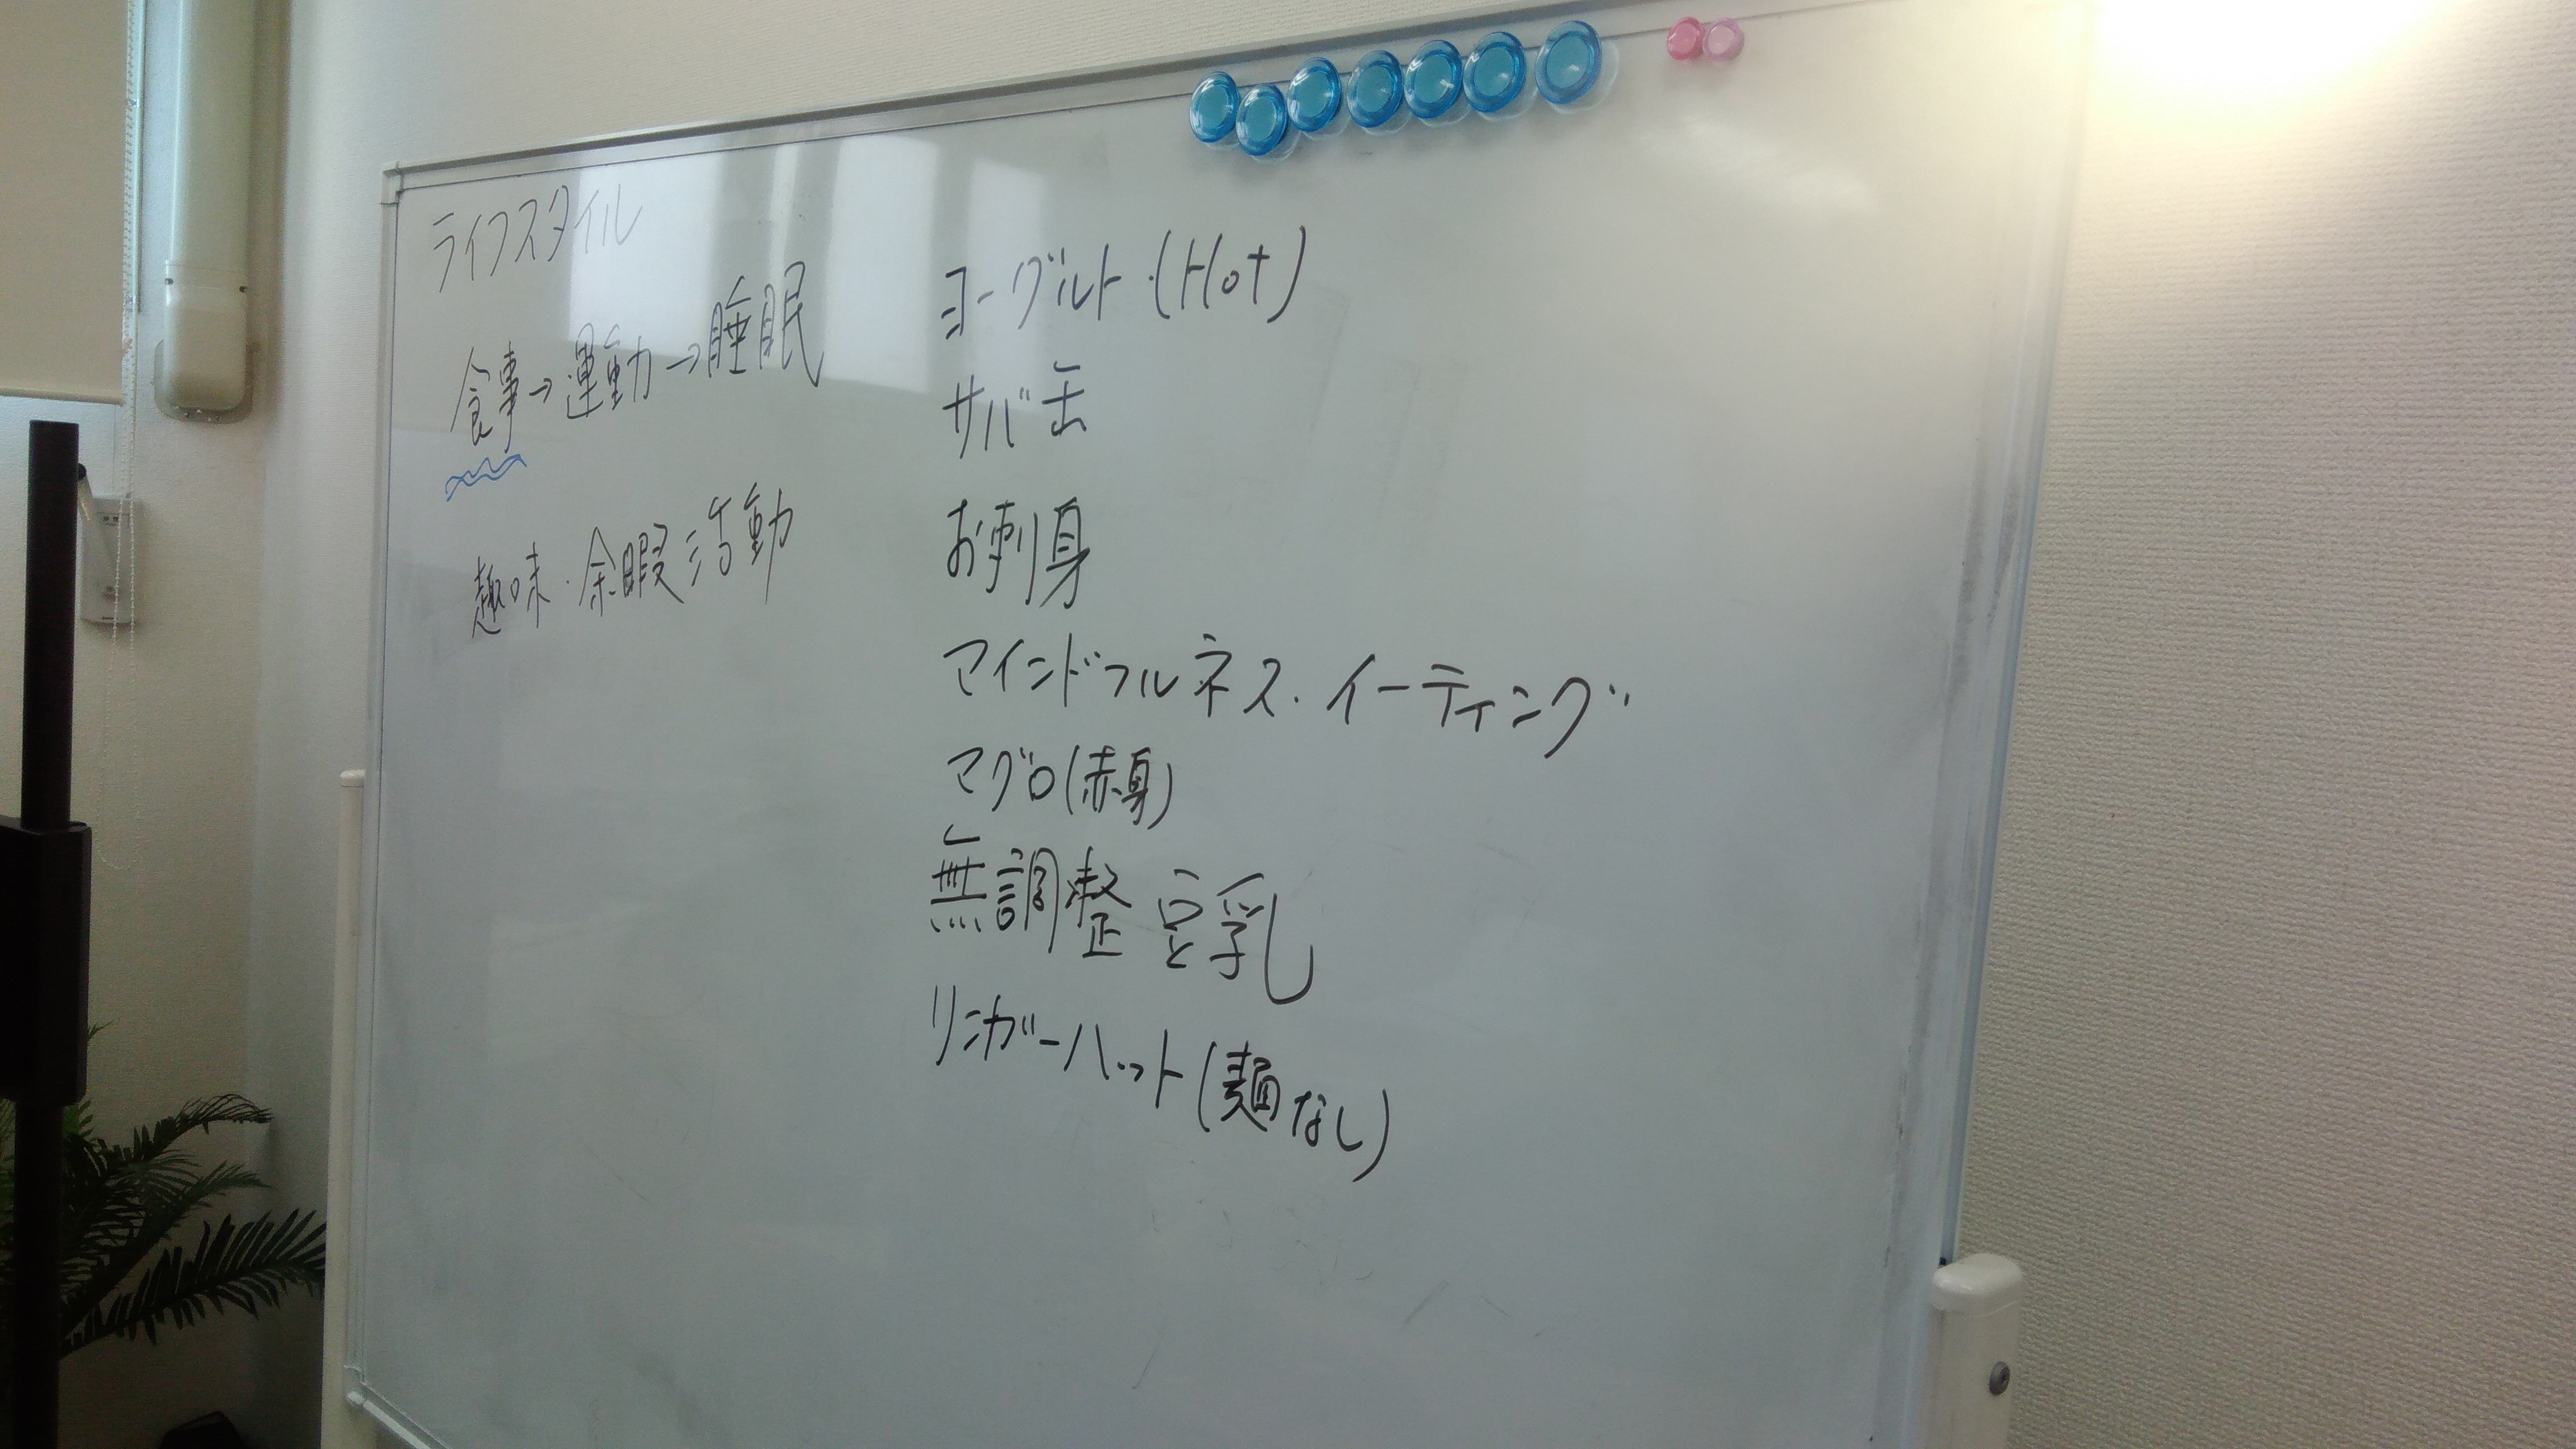 ライフスタイル
食事→運動→睡眠
趣味・余暇活動
ヨーグルト(Hot)
サバ缶
お刺身
マインドフルネス・イーティング
マグロ(赤身)
無調整豆乳
リンガーハット(麺なし)